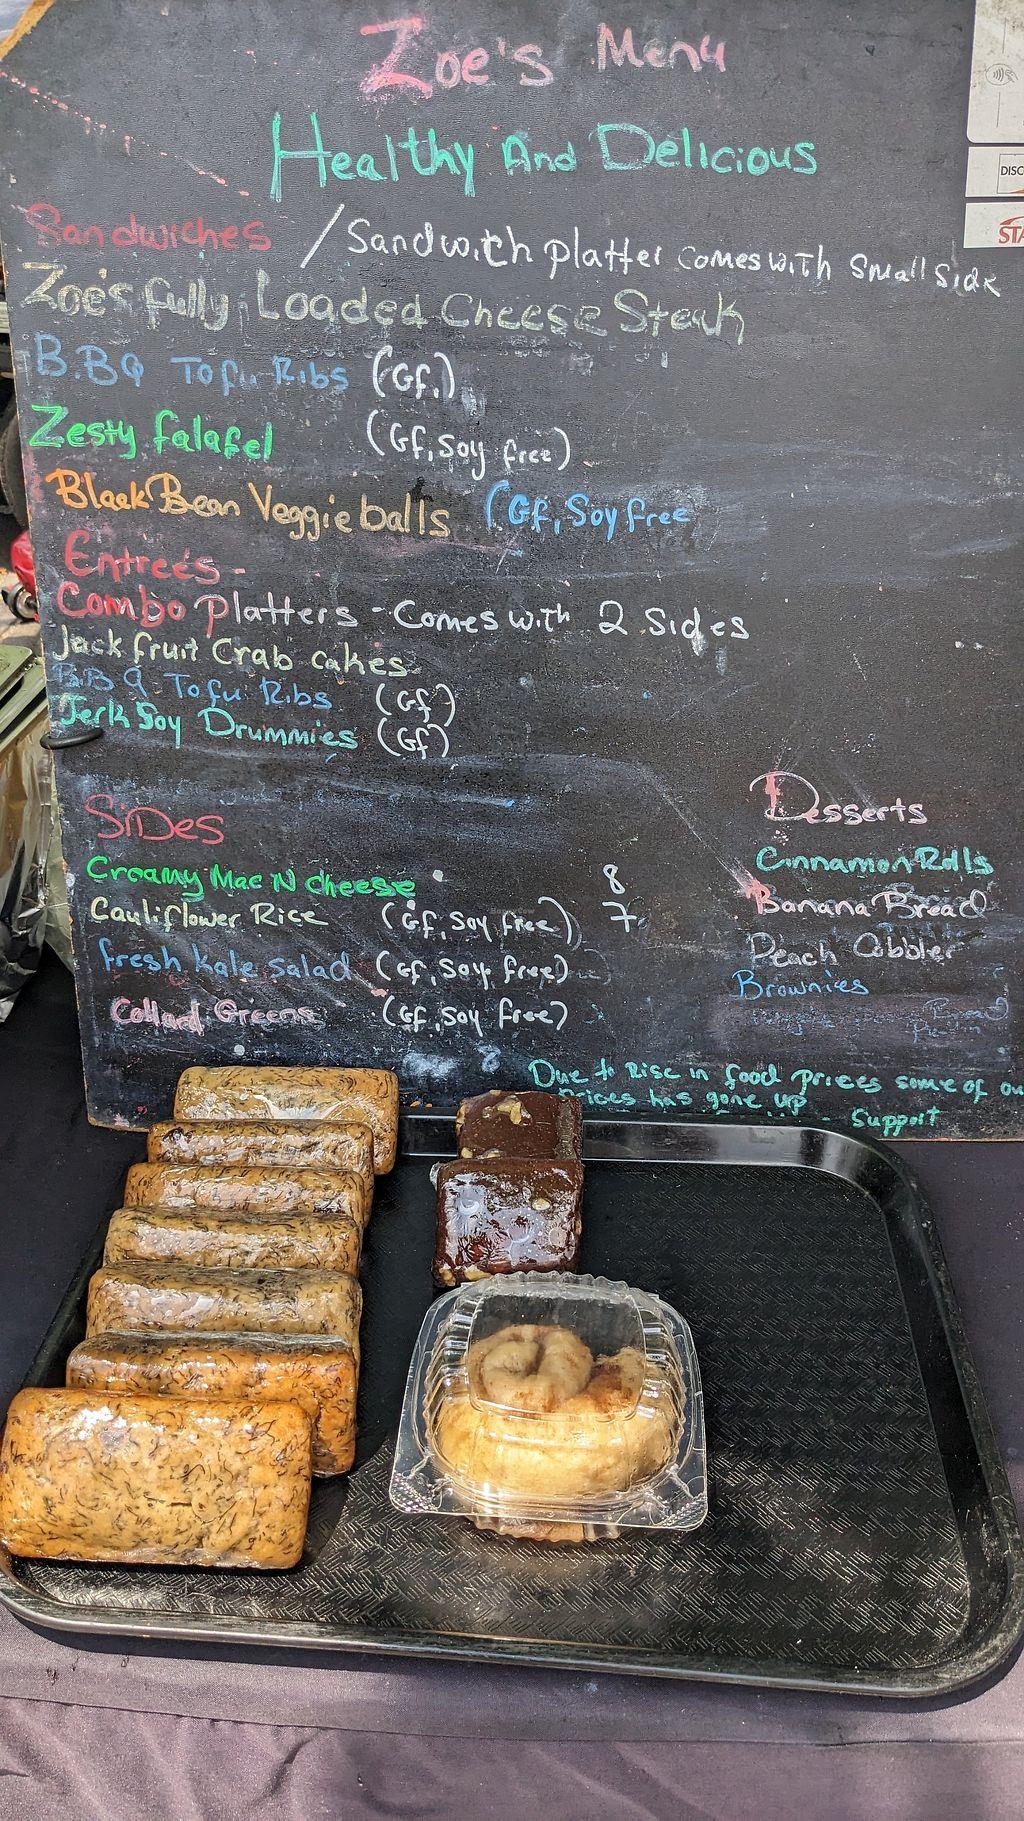 Zoe's Menu
Healthy And Delicious
Sandwiches / Sandwich platter comes with small side
Zoe's fully Loaded Cheese Steak
B.BQ Tofu Ribs (Gf,)
Zesty falafel (Gf, Soy free)
Black Bean Veggie balls (Gf, Soy free
Entrees -
Combo platters - Comes with 2 Sides
Jackfruit Crab cakes
B.B Q Tofu Ribs (Gf)
Jerk Soy Drummies (Gf)
SiDes
Creamy Mac N cheese 8
Cauliflower Rice (Gf, Soy free) 7
fresh kale Salad (Gf, Soy free)
Collard Greens (Gf, Soy free)
8
Desserts
Cinnamon Rolls
Banana Bread
Peach Cobbler
Brownies
Bread
Due to Rise in food prices some of ou
prices has gone up
- Support
DISC
STA